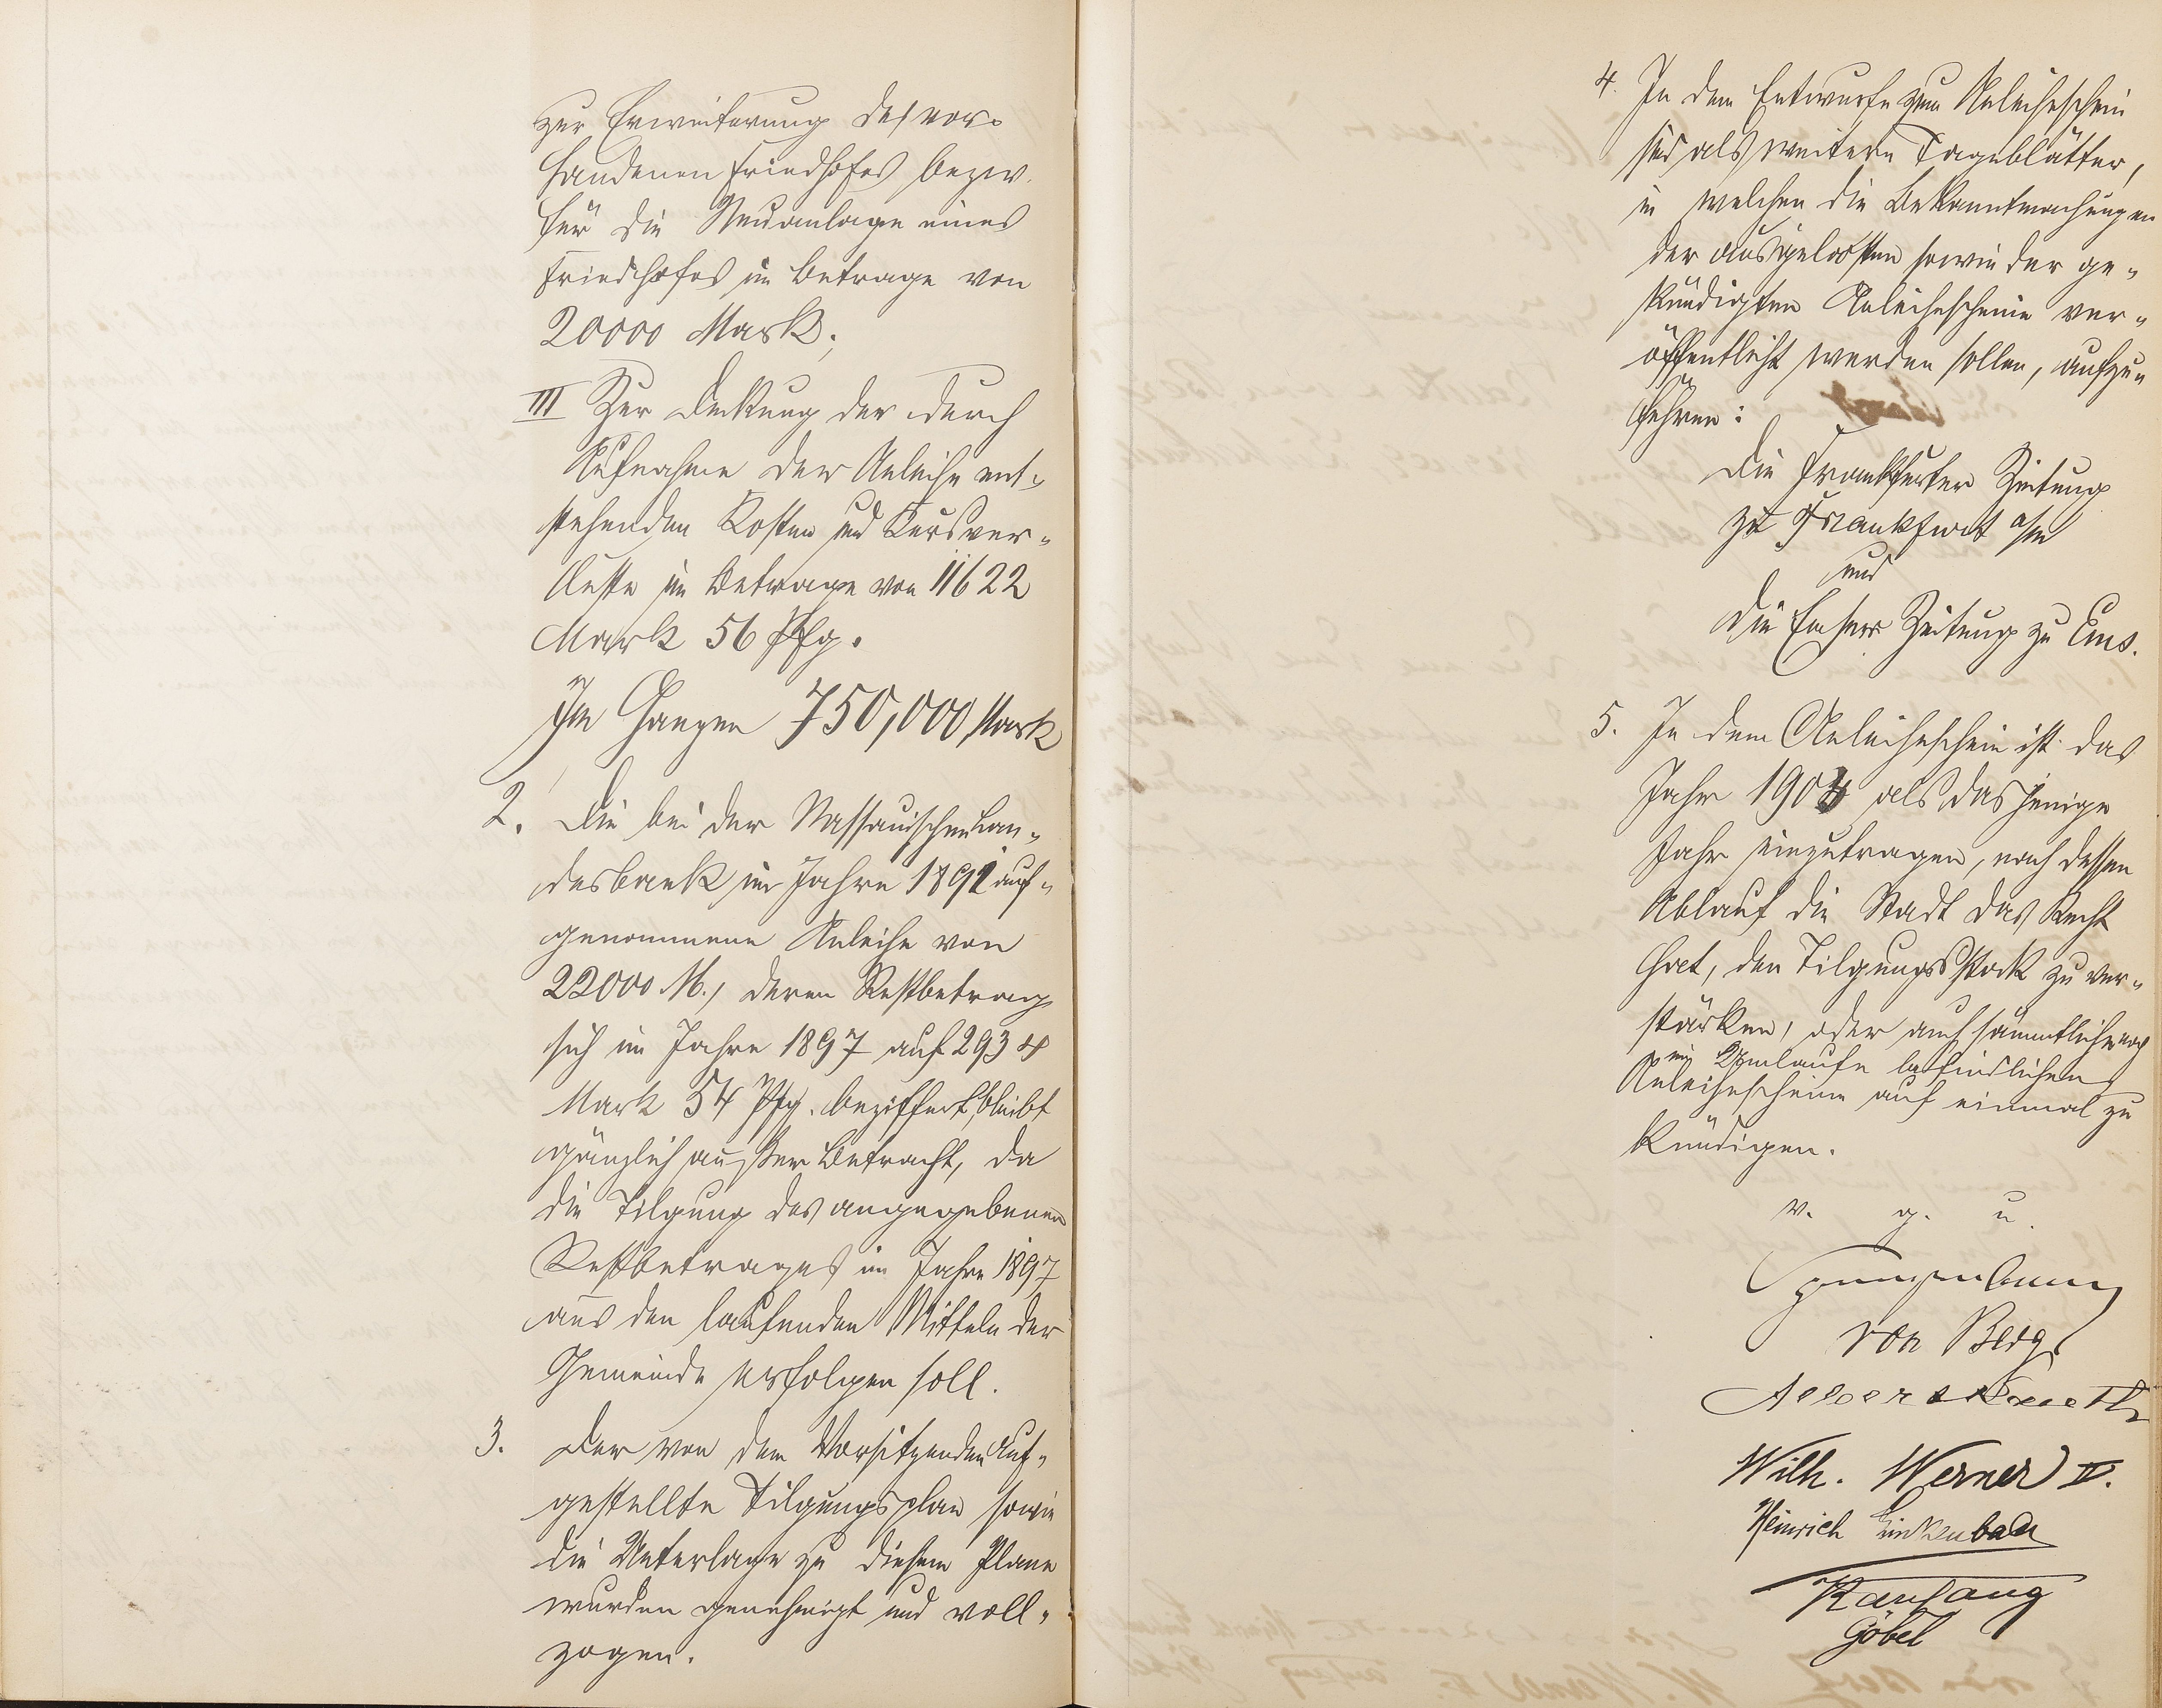 zur Erweiterung des vor=
handenen Friedhofes bezw.
für die Neuanlage eines
Friedhofes im Betrage von
20000 Mark;
III Zur Deckung der durch
Aufnahme der Anleihe ent=
stehenden Kosten und Kursver=
luste im Betrage von 11622
Mark 56 Pfg.
Im Ganzen 750,000 Mark
2. Die bei der Nassauischen Lan=
desbank im Jahre 1891 auf=
genommene Anleihe von
22000 M., deren Restbetrag
sich im Jahre 1897 auf 2934
Mark 54 Pfg. beziffert, bleibt
gänzlich außer Betracht, da
die Tilgung des angegebenen
Restbetrages im Jahre 1897
aus den laufenden Mitteln der
Gemeinde erfolgen soll.
3. Der von dem Vorsitzenden auf=
gestellte Tilgungsplan sowie
die Unterlage zu diesem Plane
wurden genehmigt und voll=
zogen.
4. In dem Entwurfe zum Anleiheschein
sind als weitere Tageblätter,
in welchen die Bekanntmachungen
der ausgeloosten sowie der ge=
kündigten Anleihescheine ver=
öffentlicht werden sollen, aufzu=
führen:
Die Frankfurter Zeitung
zu Frankfurt a/m
und
die Emser Zeitung zu Ems.
5. In dem Anleiheschein ist das
Jahr 190 als dasjenige
Jahr einzutragen, nach dessen
Ablauf die Stadt das Recht
hat, den Tilgungsstock zu ver=
stärken, oder auch sämmtliche noch
im Umlaufe befindlichen
Anleihescheine auf einmal zu
kündigen.
v. g. u.
von Berg
Wilh. Werner IV.
Heinrich Linkenbach
Kaufang
Göbel